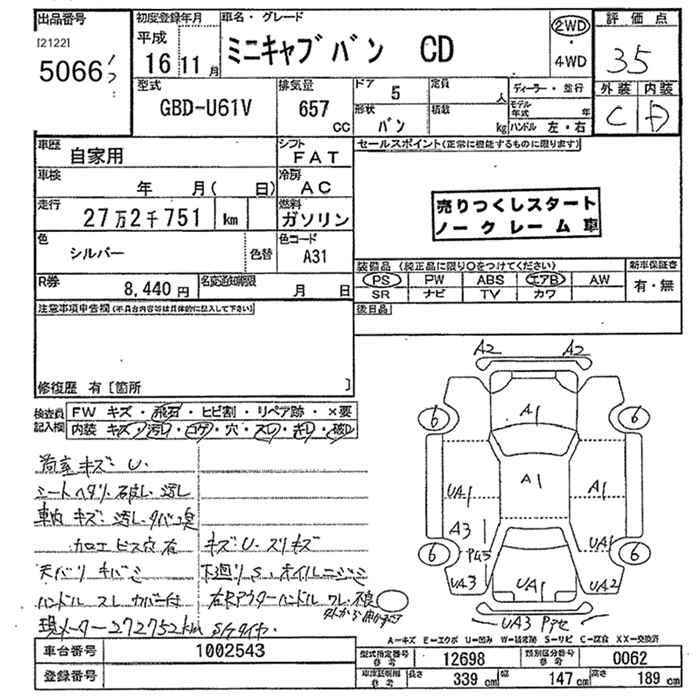 出品番号
[2122]
5066
初度登録年月
平成
16 11月
車名・グレード
ミニキャブバン CD
2WD
・
4WD
評価点
35
外装 内装
C D
型式
GBD-U61V
排気量
657
CC
ドア
5
形状
バン
定員
人
積載
kg
ディーラー・並行
モデル年式 年
ハンドル 左・右
車歴
自家用
シフト
FAT
車検
年 月( 日)
冷房
AC
走行
27万2千751 km
燃料
ガソリン
色
シルバー
色替
色コード
A31
R券
8,440円
名変通知期限
月 日
セールスポイント(正常に機能するものに限ります)
売りつくしスタート
ノークレーム車
装備品 (純正品に限り○をつけてください)
PS PW ABS エアB AW
SR ナビ TV カワ
新車保証書
有・無
後日品
注意事項申告欄(不具合内容等は具体的に記入して下さい)
修復歴 有[箇所 ]
検査員
記入欄
FW キズ・飛石・ヒビ割・リペア跡・×要
内装 キズ・汚レ・コゲ・穴・スレ・キレ・破レ
荷室キズ U.
シートヘタリ・破レ・汚レ
車内キズ・汚レ・タバコ臭
加工ビス穴有
天バリキバミ
ハンドルスレ カバー付
現メーター272752km S/Tタイヤ
キズ U. スリキズ
下廻りS. オイルニジミ
右Rアウターハンドルワレ・不良
A2 A2
6 A1 6
UA1 A1 A1
A3 UA1
6 6
UA3 UA1 UA2
UA3
A=キズ E=エクボ U=凹み W=補修跡 S=サビ C=腐食 XX=交換済
車台番号
1002543
登録番号
型式指定番号
参考
12698
類別区分番号
参考
0062
車庫証明用
参考
長さ 339 cm 幅 147 cm 高さ 189 cm